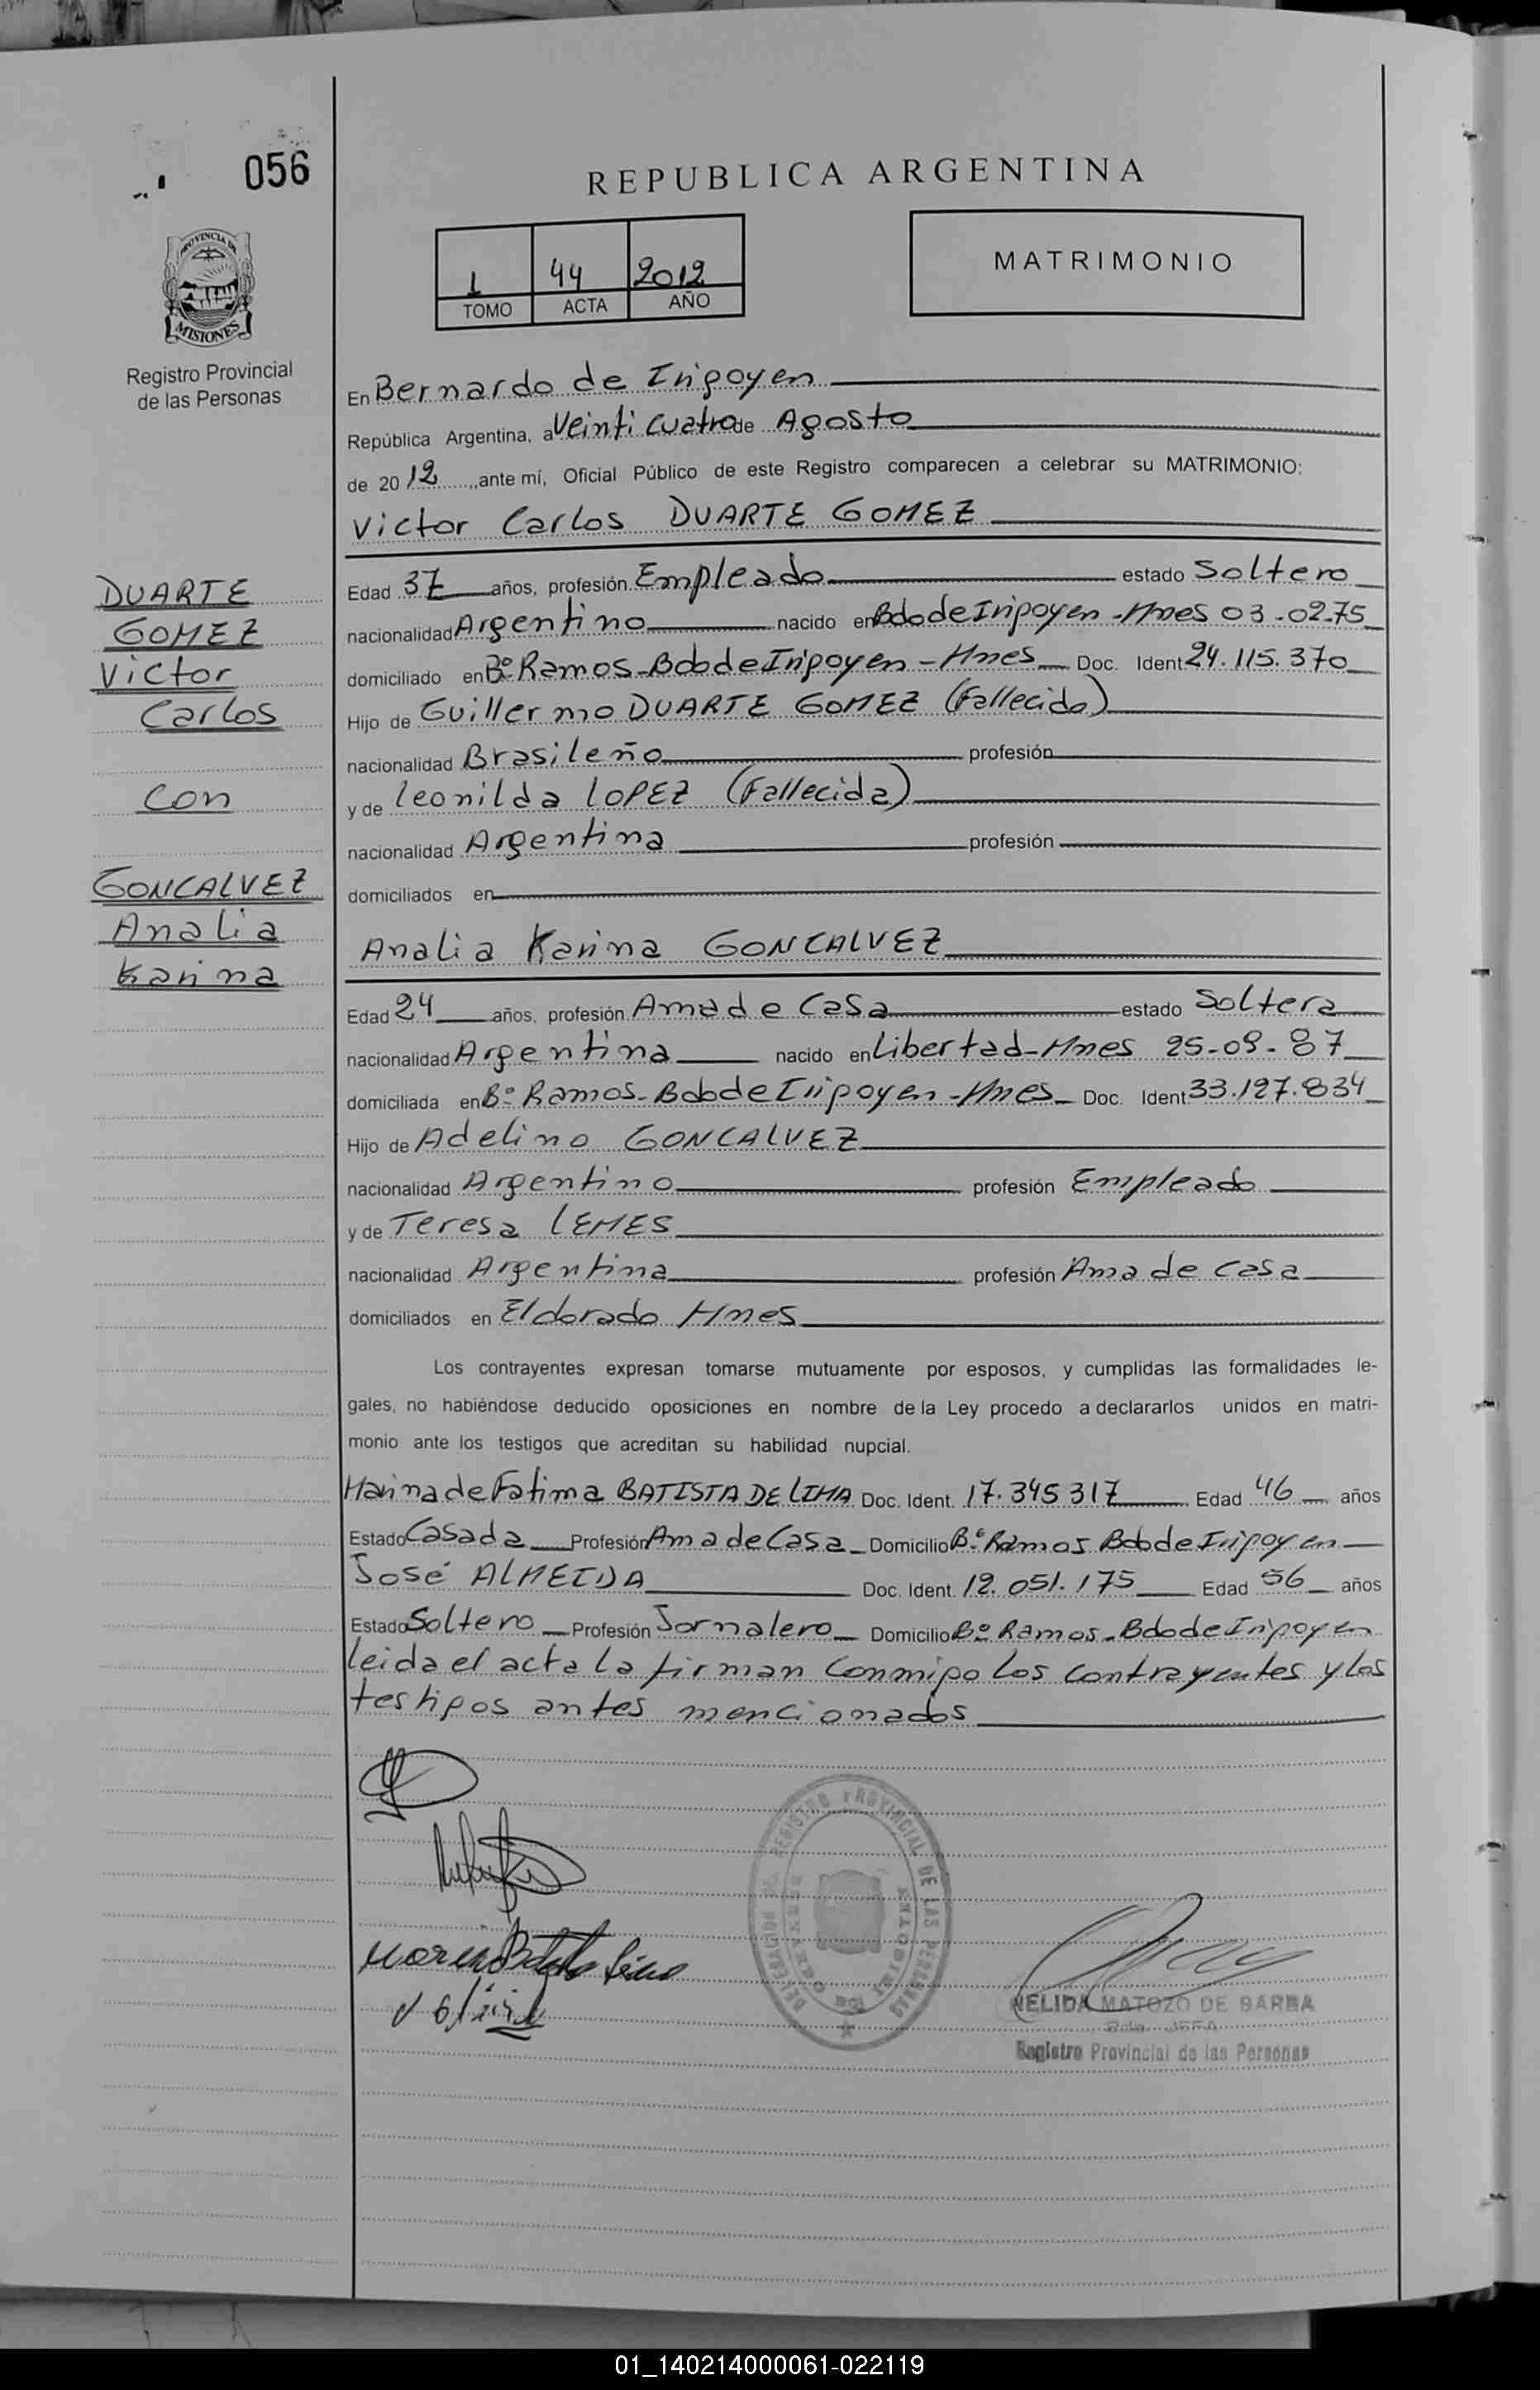 056
REPUBLICA ARGENTINA
1 44 2012
TOMO ACTA AÑO
MATRIMONIO
PROVINCIA DE
MISIONES
Registro Provincial
de las Personas
En Bernardo de Irigoyen
República Argentina, a Veinti cuatro de Agosto
de 2012, ante mí, Oficial Público de este Registro comparecen a celebrar su MATRIMONIO:
Victor Carlos DUARTE GOMEZ
DUARTE
GOMEZ
Victor
Carlos
con
GONCALVEZ
Analia
Karina
Edad 37 años, profesión Empleado estado Soltero
nacionalidad Argentino nacido en Bdo de Irigoyen - Mnes 03-02-75
domiciliado en Bº Ramos - Bdo de Irigoyen - Mnes Doc. Ident 24.115.370
Hijo de Guillermo DUARTE GOMEZ (Fallecido)
nacionalidad Brasileño profesión
y de Leonilda LOPEZ (Fallecida)
nacionalidad Argentina profesión
domiciliados en
Analia Karina GONCALVEZ
Edad 24 años, profesión Ama de Casa estado Soltera
nacionalidad Argentina nacido en Libertad - Mnes 25-09-87
domiciliada en Bº Ramos - Bdo de Irigoyen - Mnes Doc. Ident 33.197.834
Hijo de Adelino GONCALVEZ
nacionalidad Argentino profesión Empleado
y de Teresa LEMES
nacionalidad Argentina profesión Ama de casa
domiciliados en Eldorado Mnes
Los contrayentes expresan tomarse mutuamente por esposos, y cumplidas las formalidades le-
gales, no habiéndose deducido oposiciones en nombre de la Ley procedo a declararlos unidos en matri-
monio ante los testigos que acreditan su habilidad nupcial.
Marina de Fatima BATISTA DE LIMA Doc. Ident. 17.345317 Edad 46 años
Estado Casada Profesión Ama de Casa Domicilio Bº Ramos Bdo de Irigoyen
José ALMEIDA Doc. Ident. 12.051.175 Edad 56 años
Estado Soltero Profesión Jornalero Domicilio Bº Ramos - Bdo de Irigoyen
leida el acta la firman conmigo los contrayentes y los
testigos antes mencionados
REGISTRO PROVINCIAL DE LAS PERSONAS
NELIDA MATOZO DE BARBA
JEFA
Registro Provincial de las Personas
01_140214000061-022119